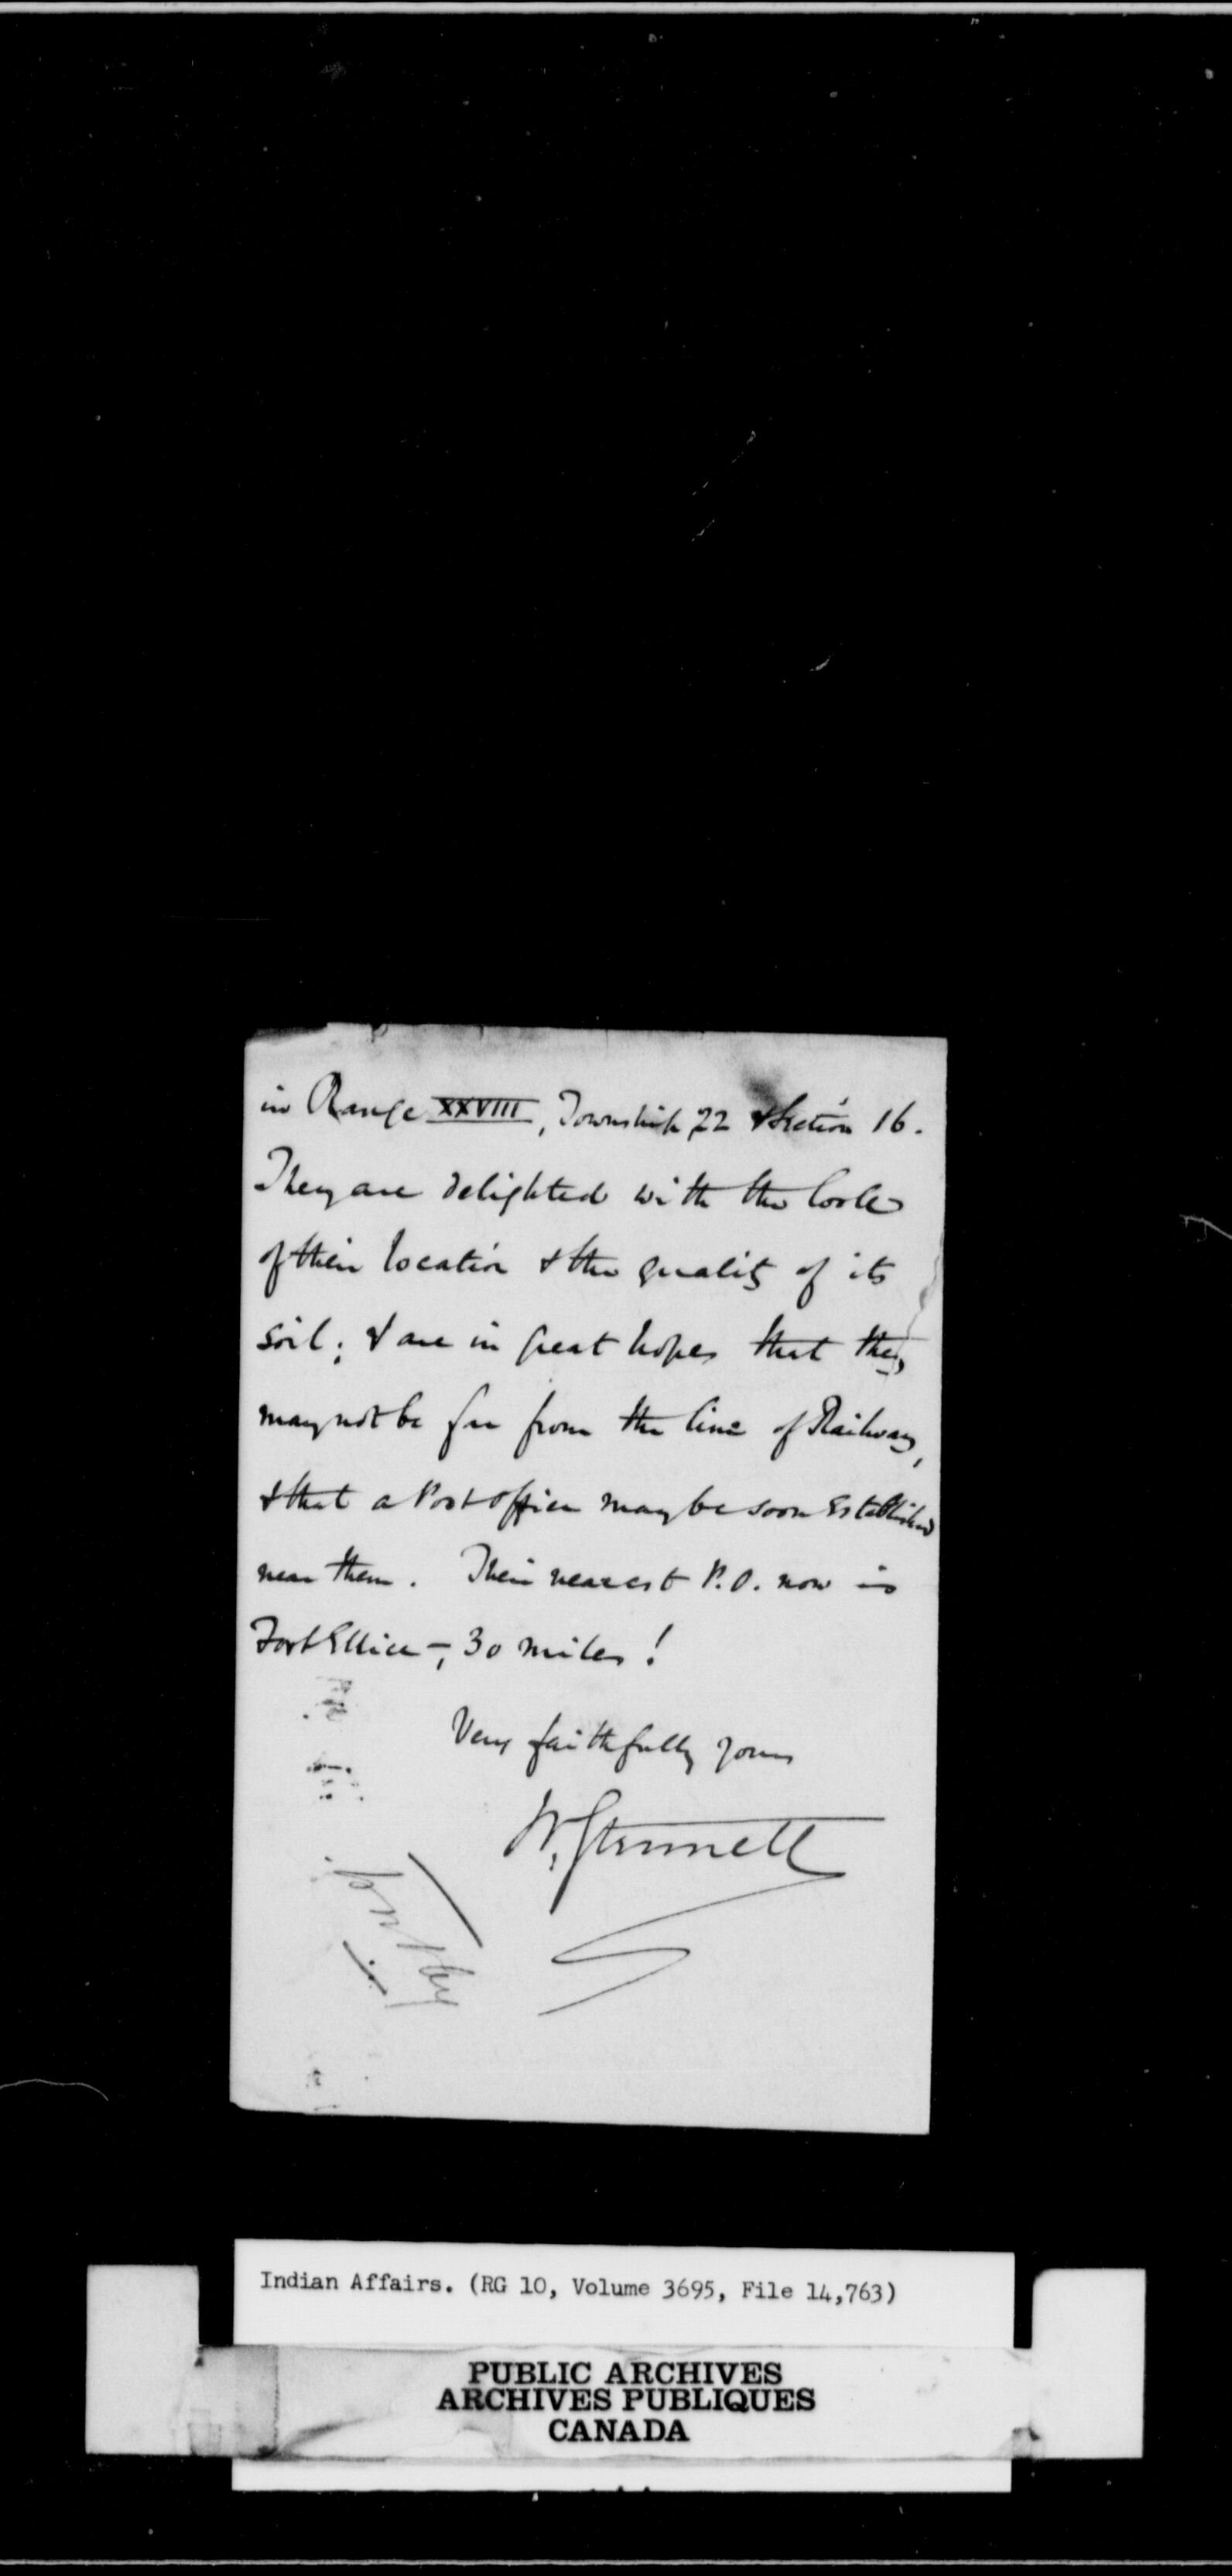 in Range XXVIII, Township 22 & Section 16.
They are delighted with the look
of their location & the quality of its
soil; & are in great hopes that they
may not be far from the line of Railway,
& that a Post Office may be soon Established
near them. Their nearest P.O. now is
Fort Ellice -, 30 miles!
Very faithfully yours
W. Stennett
Indian Affairs. (RG 10, Volume 3695, File 14,763)
PUBLIC ARCHIVES
ARCHIVES PUBLIQUES
CANADA